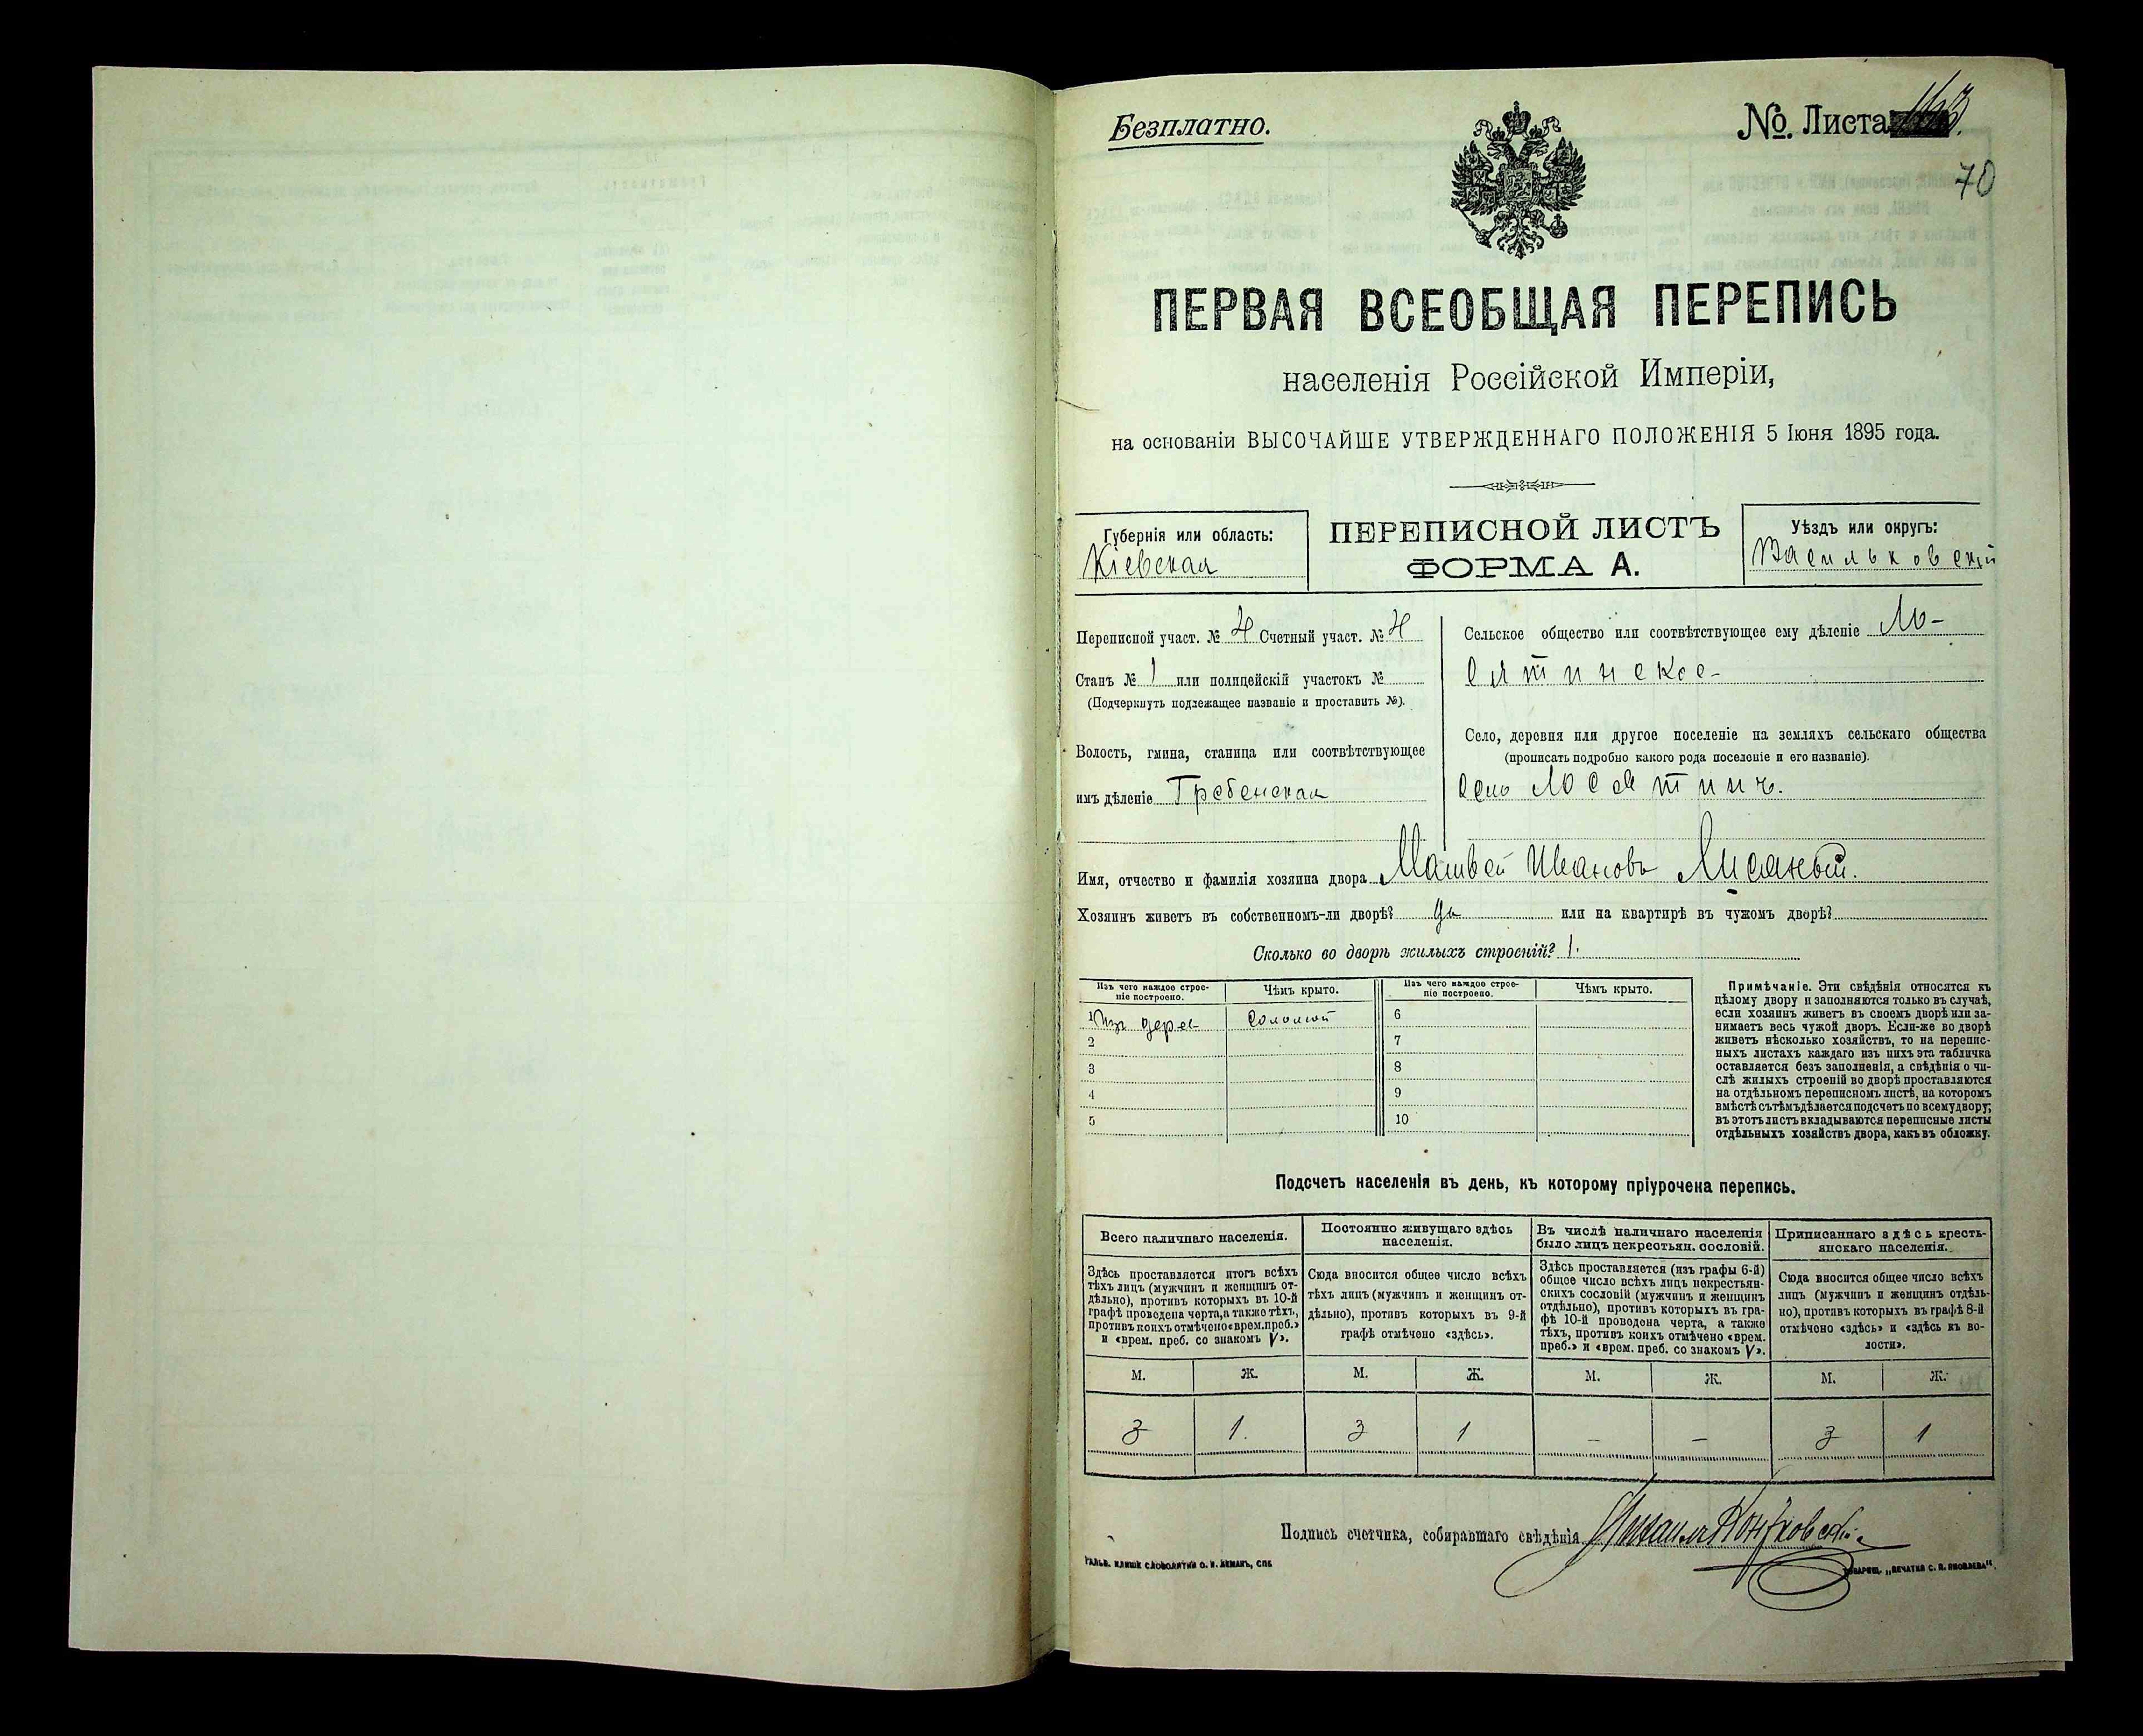 Безплатно.
№. Листа 163.
70
ПЕРВАЯ ВСЕОБЩАЯ ПЕРЕПИСЬ
населенія Россійской Имперіи,
на основаніи ВЫСОЧАЙШЕ УТВЕРЖДЕННАГО ПОЛОЖЕНІЯ 5 Іюня 1895 года.
Губернія или область:
Кіевская
ПЕРЕПИСНОЙ ЛИСТЪ
ФОРМА А.
Уѣздъ или округъ:
Васильковскій
Переписной участ. № 4 Счетный участ. № 4
Станъ № 1 или полицейскій участокъ №
(Подчеркнуть подлежащее названіе и проставить №).
Волость, гмина, станица или соотвѣтствующее
имъ дѣленіе Гребенская
Сельское общество или соотвѣтствующее ему дѣленіе Ло-
сятинское
Село, деревня или другое поселеніе на земляхъ сельскаго общества
(прописать подробно какого рода поселеніе и его названіе).
село Лосятинъ.
Имя, отчество и фамилія хозяина двора Матвей Ивановъ Лисаный.
Хозяинъ живетъ въ собственномъ-ли дворѣ? да или на квартирѣ въ чужомъ дворѣ?
Сколько во дворѣ жилыхъ строеній? 1.
Изъ чего каждое строе-
ніе построено.
Чѣмъ крыто.
Изъ чего каждое строе-
ніе построено.
Чѣмъ крыто.
1 Изъ дерев Соломой 6
2 7
3 8
4 9
5 10
Примѣчаніе. Эти свѣдѣнія относятся къ
цѣлому двору и заполняются только въ случаѣ,
если хозяинъ живетъ въ своемъ дворѣ или за-
нимаетъ весь чужой дворъ. Если-же во дворѣ
живетъ нѣсколько хозяйствъ, то на перепис-
ныхъ листахъ каждаго изъ нихъ эта табличка
оставляется безъ заполненія, а свѣдѣнія о чи-
слѣ жилыхъ строеній во дворѣ проставляются
на отдѣльномъ переписномъ листѣ, на которомъ
вмѣстѣ съ тѣмъ дѣлается подсчетъ по всему двору;
въ этотъ листъ вкладываются переписные листы
отдѣльныхъ хозяйствъ двора, какъ въ обложку.
Подсчетъ населенія въ день, къ которому пріурочена перепись.
Всего наличнаго населенія.
Здѣсь проставляется итогъ всѣхъ
тѣхъ лицъ (мужчинъ и женщинъ от-
дѣльно), противъ которыхъ въ 10-й
графѣ проведена черта, а также тѣхъ,
противъ коихъ отмѣчено «врем. преб.»
и «врем. преб. со знакомъ V».
Постоянно живущаго здѣсь
населенія.
Сюда вносится общее число всѣхъ
тѣхъ лицъ (мужчинъ и женщинъ от-
дѣльно), противъ которыхъ въ 9-й
графѣ отмѣчено «здѣсь».
Въ числѣ наличнаго населенія
было лицъ некрестьян. сословій.
Здѣсь проставляется (изъ графы 6-й)
общее число всѣхъ лицъ некрестьян-
скихъ сословій (мужчинъ и женщинъ
отдѣльно), противъ которыхъ въ гра-
фѣ 10-й проведена черта, а также
тѣхъ, противъ коихъ отмѣчено «врем.
преб.» и «врем. преб. со знакомъ V».
Приписаннаго здѣсь кресть-
янскаго населенія.
Сюда вносится общее число всѣхъ
лицъ (мужчинъ и женщинъ отдѣль-
но), противъ которыхъ въ графѣ 8-й
отмѣчено «здѣсь» и «здѣсь въ во-
лости».
М. Ж. М. Ж. М. Ж. М. Ж.
3 1. 3 1 – – 3 1
Подпись счетчика, собиравшаго свѣдѣнія
ГАЛЬВ. КЛИШЕ СЛОВОЛИТНИ О. И. ЛЕМАНЪ, СПБ
ТОВАРИЩ. „ПЕЧАТНЯ С. П. ЯКОВЛЕВА".